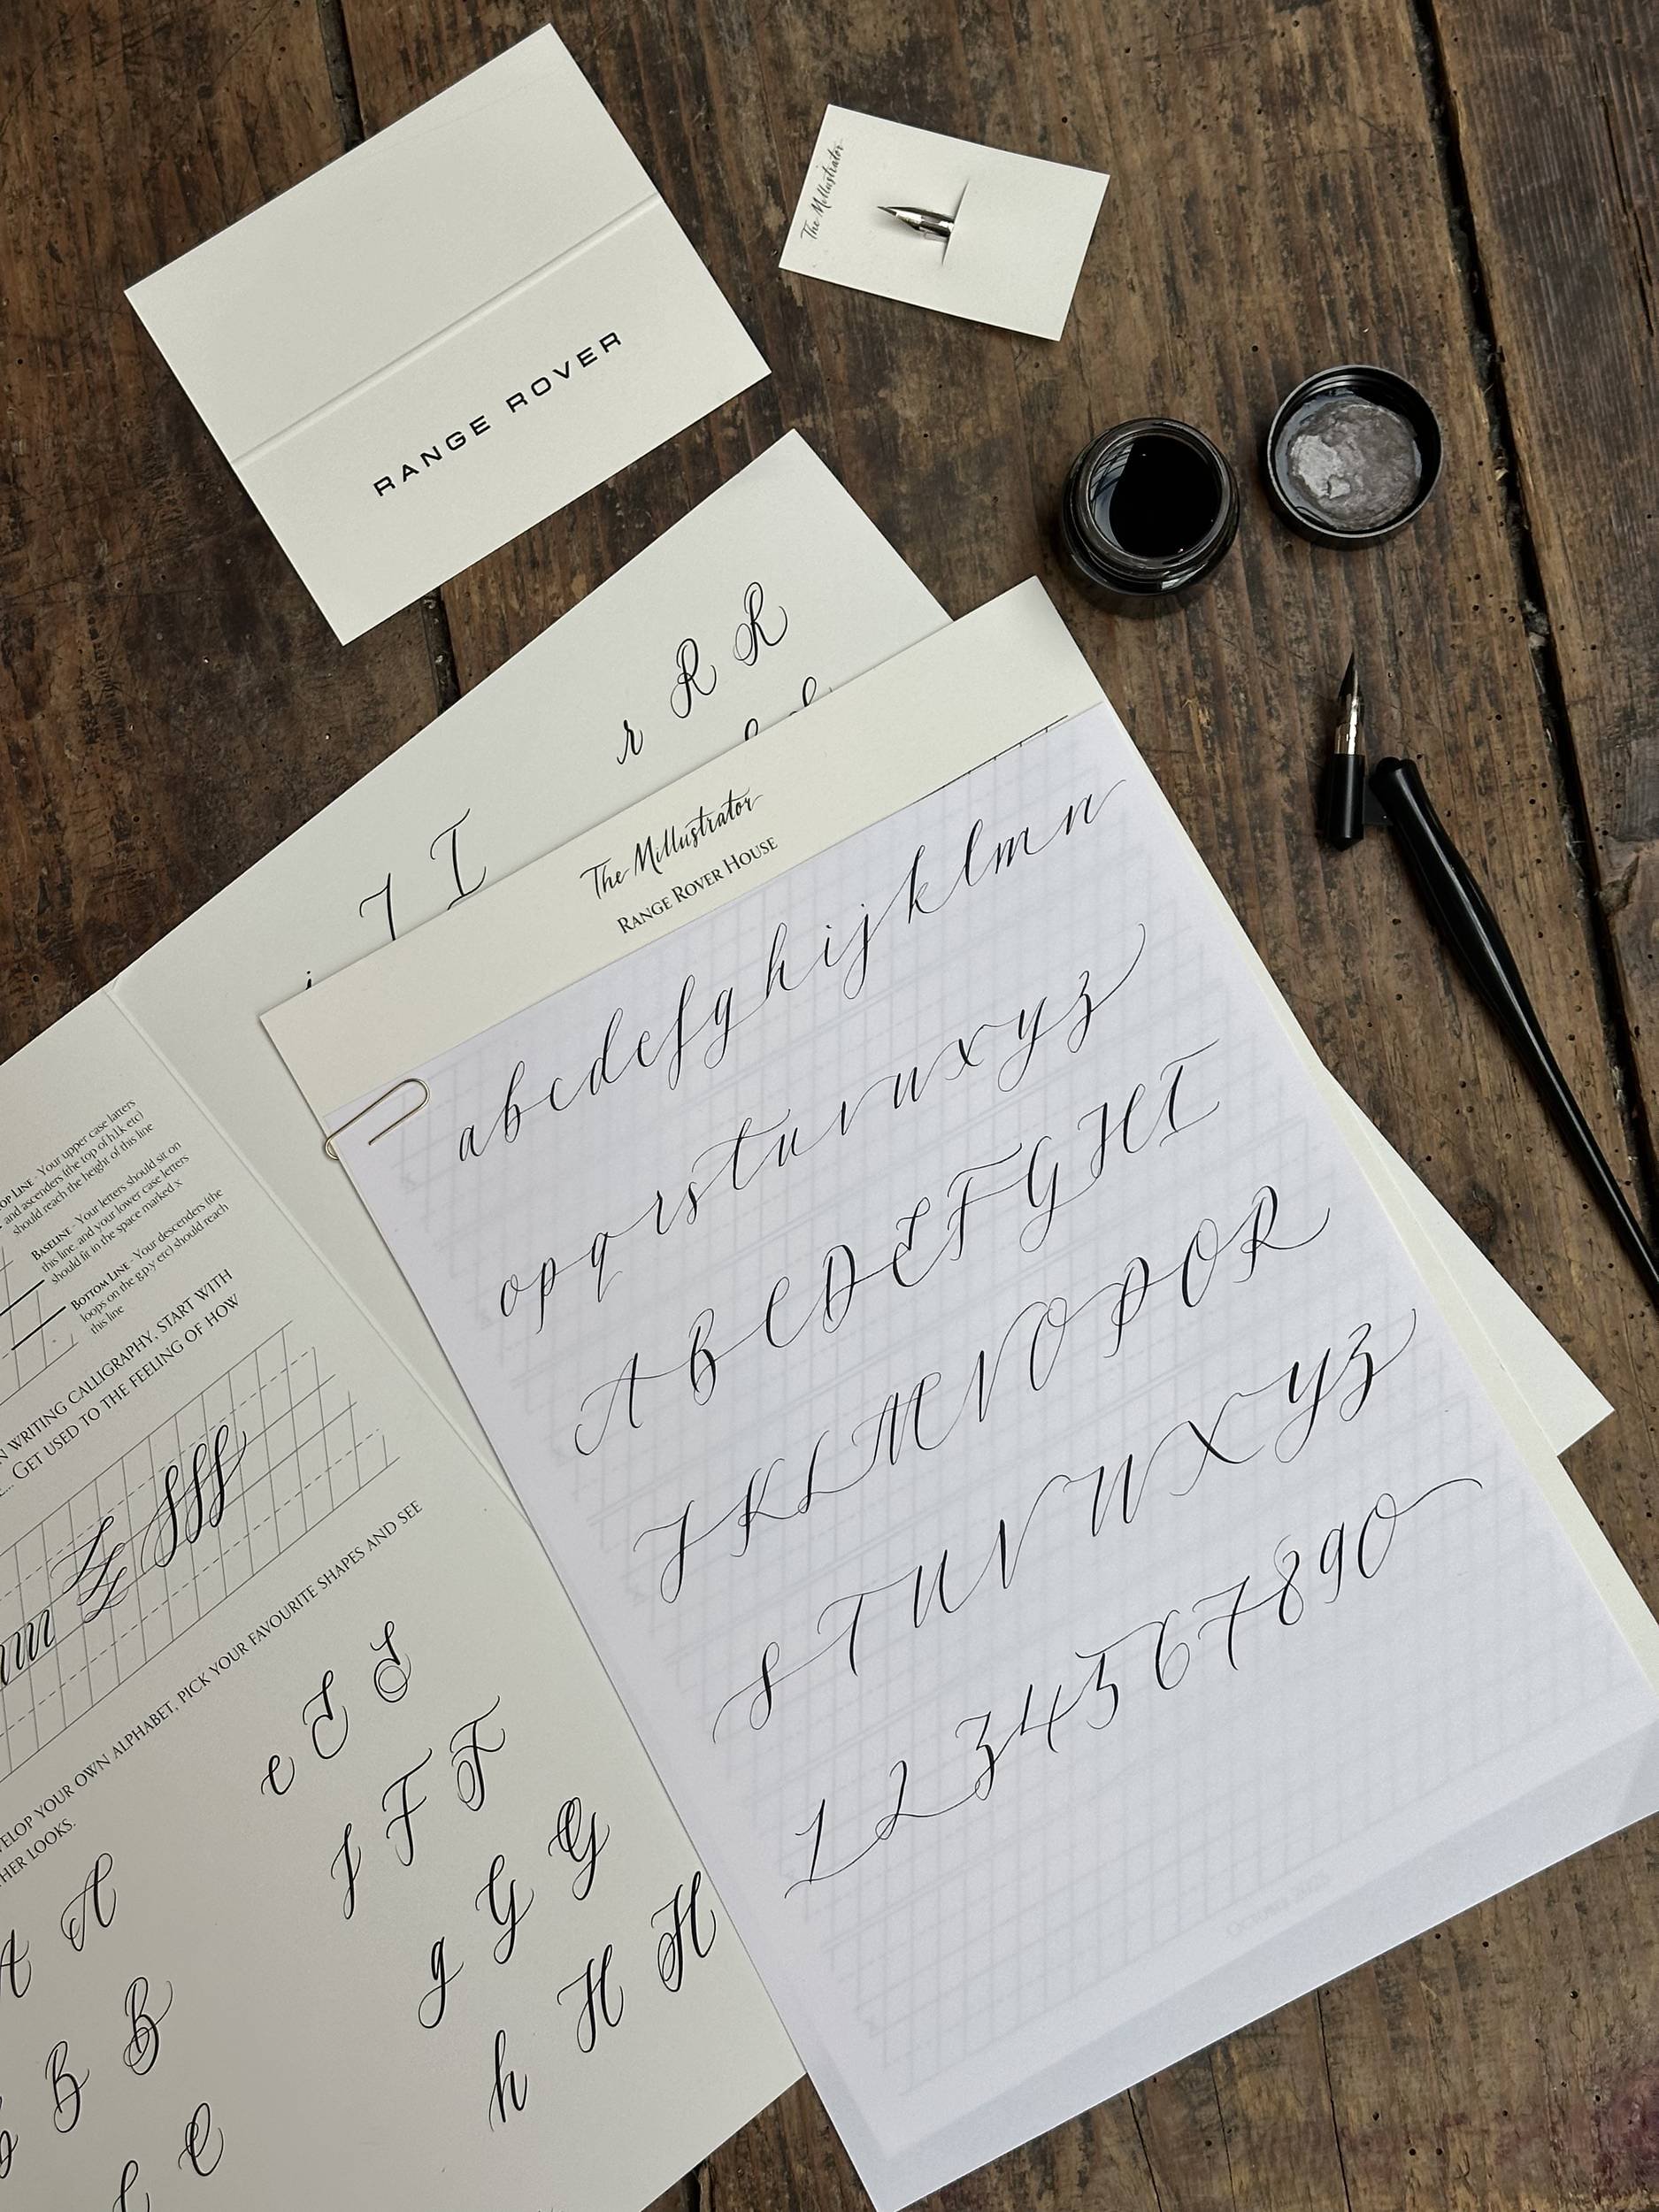 The Millustrator
RANGE ROVER
r R R
I I
The Millustrator
RANGE ROVER HOUSE
abcdefghijklmn
opqrstuvwxyz
ABCDEFGHI
JKLMNOPQR
STUVWXYZ
1234567890
OP LINE - Your upper case letters
and ascenders (the top of h,l,k etc)
should reach the height of this line
BASELINE - Your letters should sit on
this line, and your lower case letters
should fit in the space marked x
BOTTOM LINE - Your descenders (the
loops on the g,p,y etc) should reach
this line
N WRITING CALLIGRAPHY, START WITH
GET USED TO THE FEELING OF HOW
VELOP YOUR OWN ALPHABET, PICK YOUR FAVOURITE SHAPES AND SEE
HER LOOKS.
e E E
f F F
g G G
h H H
A A
B B